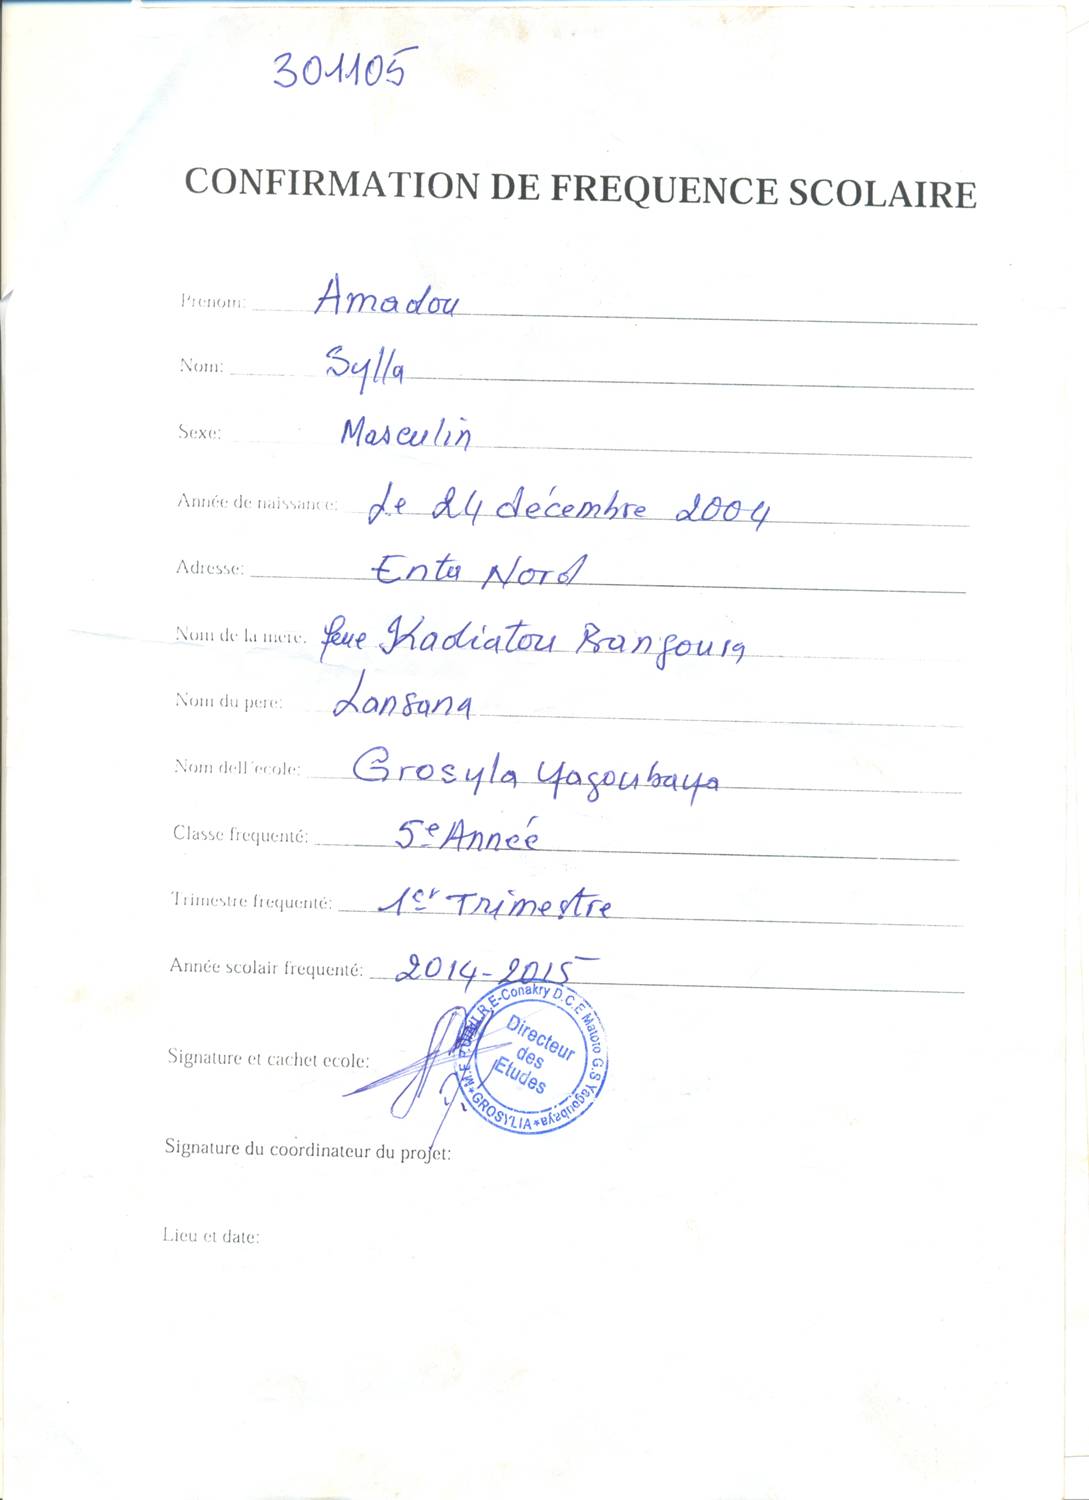 301105
CONFIRMATION DE FREQUENCE SCOLAIRE
Prenom: Amadou
Nom: Sylla
Sexe: Masculin
Année de naissance: Le 24 décembre 2004
Adresse: Enta Nord
Nom de la mere: feue Kadiatou Bangoura
Nom du pere: Lansana
Nom dell'ecole: Grosyla Yagoubaya
Classe frequenté: 5e Année
Trimestre frequenté: 1er Trimestre
Année scolair frequenté: 2014-2015
Signature et cachet ecole:
R.E-Conakry D.C.E Matoto G.S Yagoubaya*GROSYLIA*
Directeur
des
Etudes
Signature du coordinateur du projet:
Lieu et date: